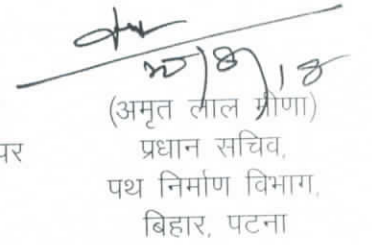 (अमृत लाल मीणा)
पर प्रधान सचिव,
पथ निर्माण विभाग,
बिहार, पटना